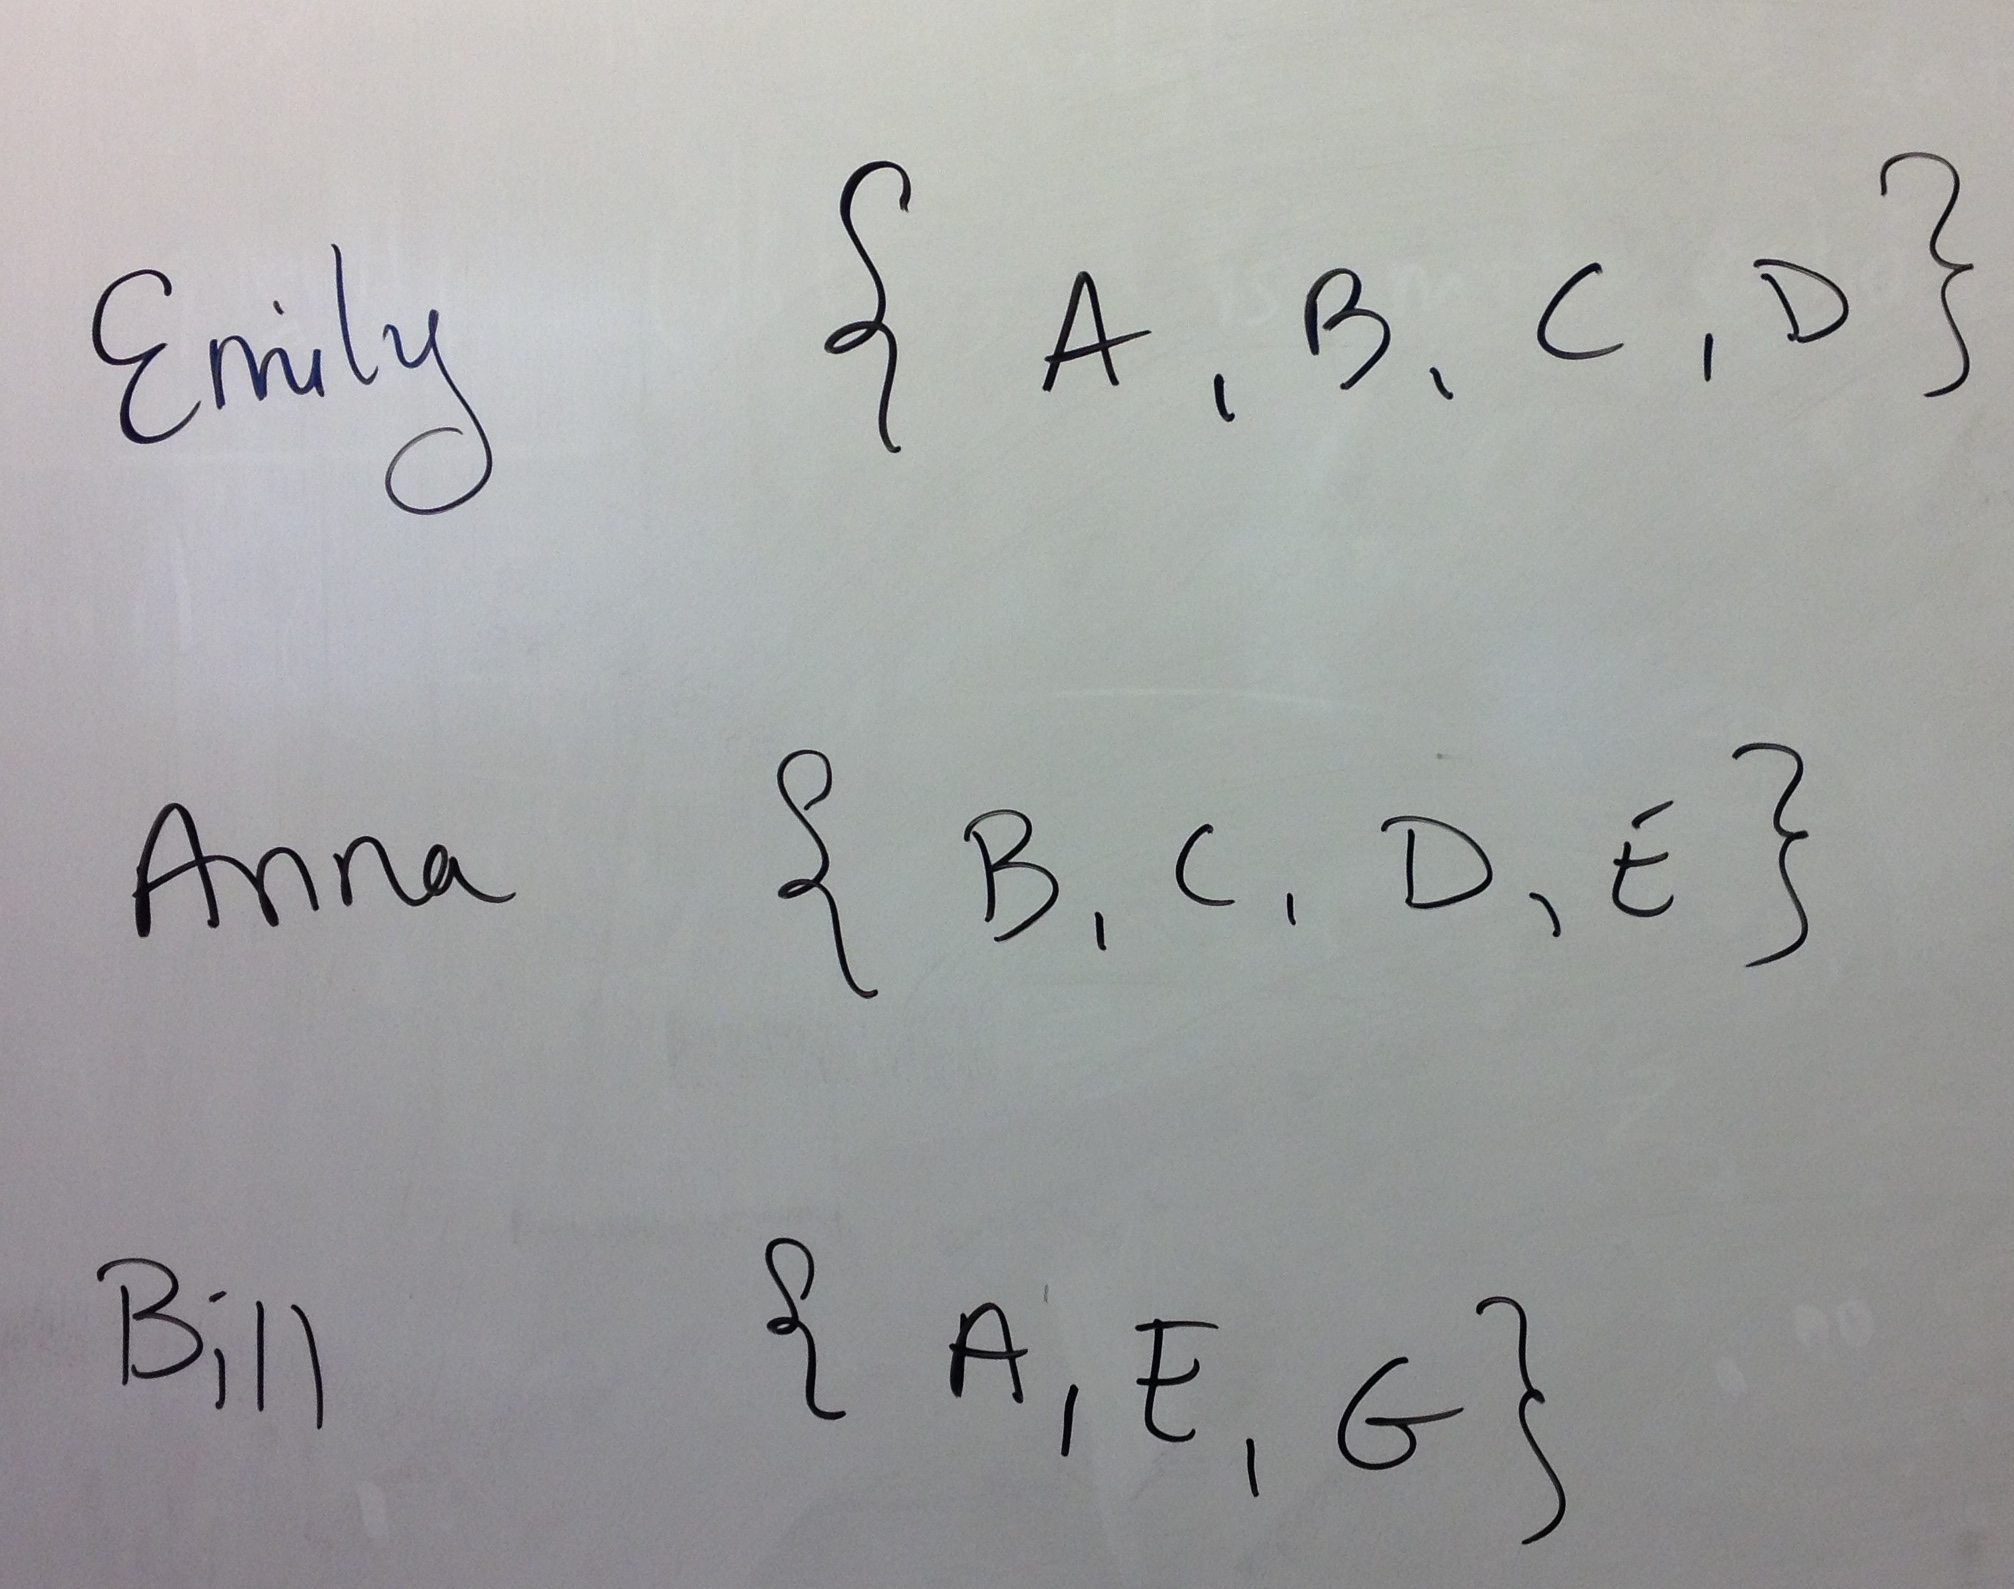 Emily { A, B, C, D }
Anna { B, C, D, E }
Bill { A, E, G }